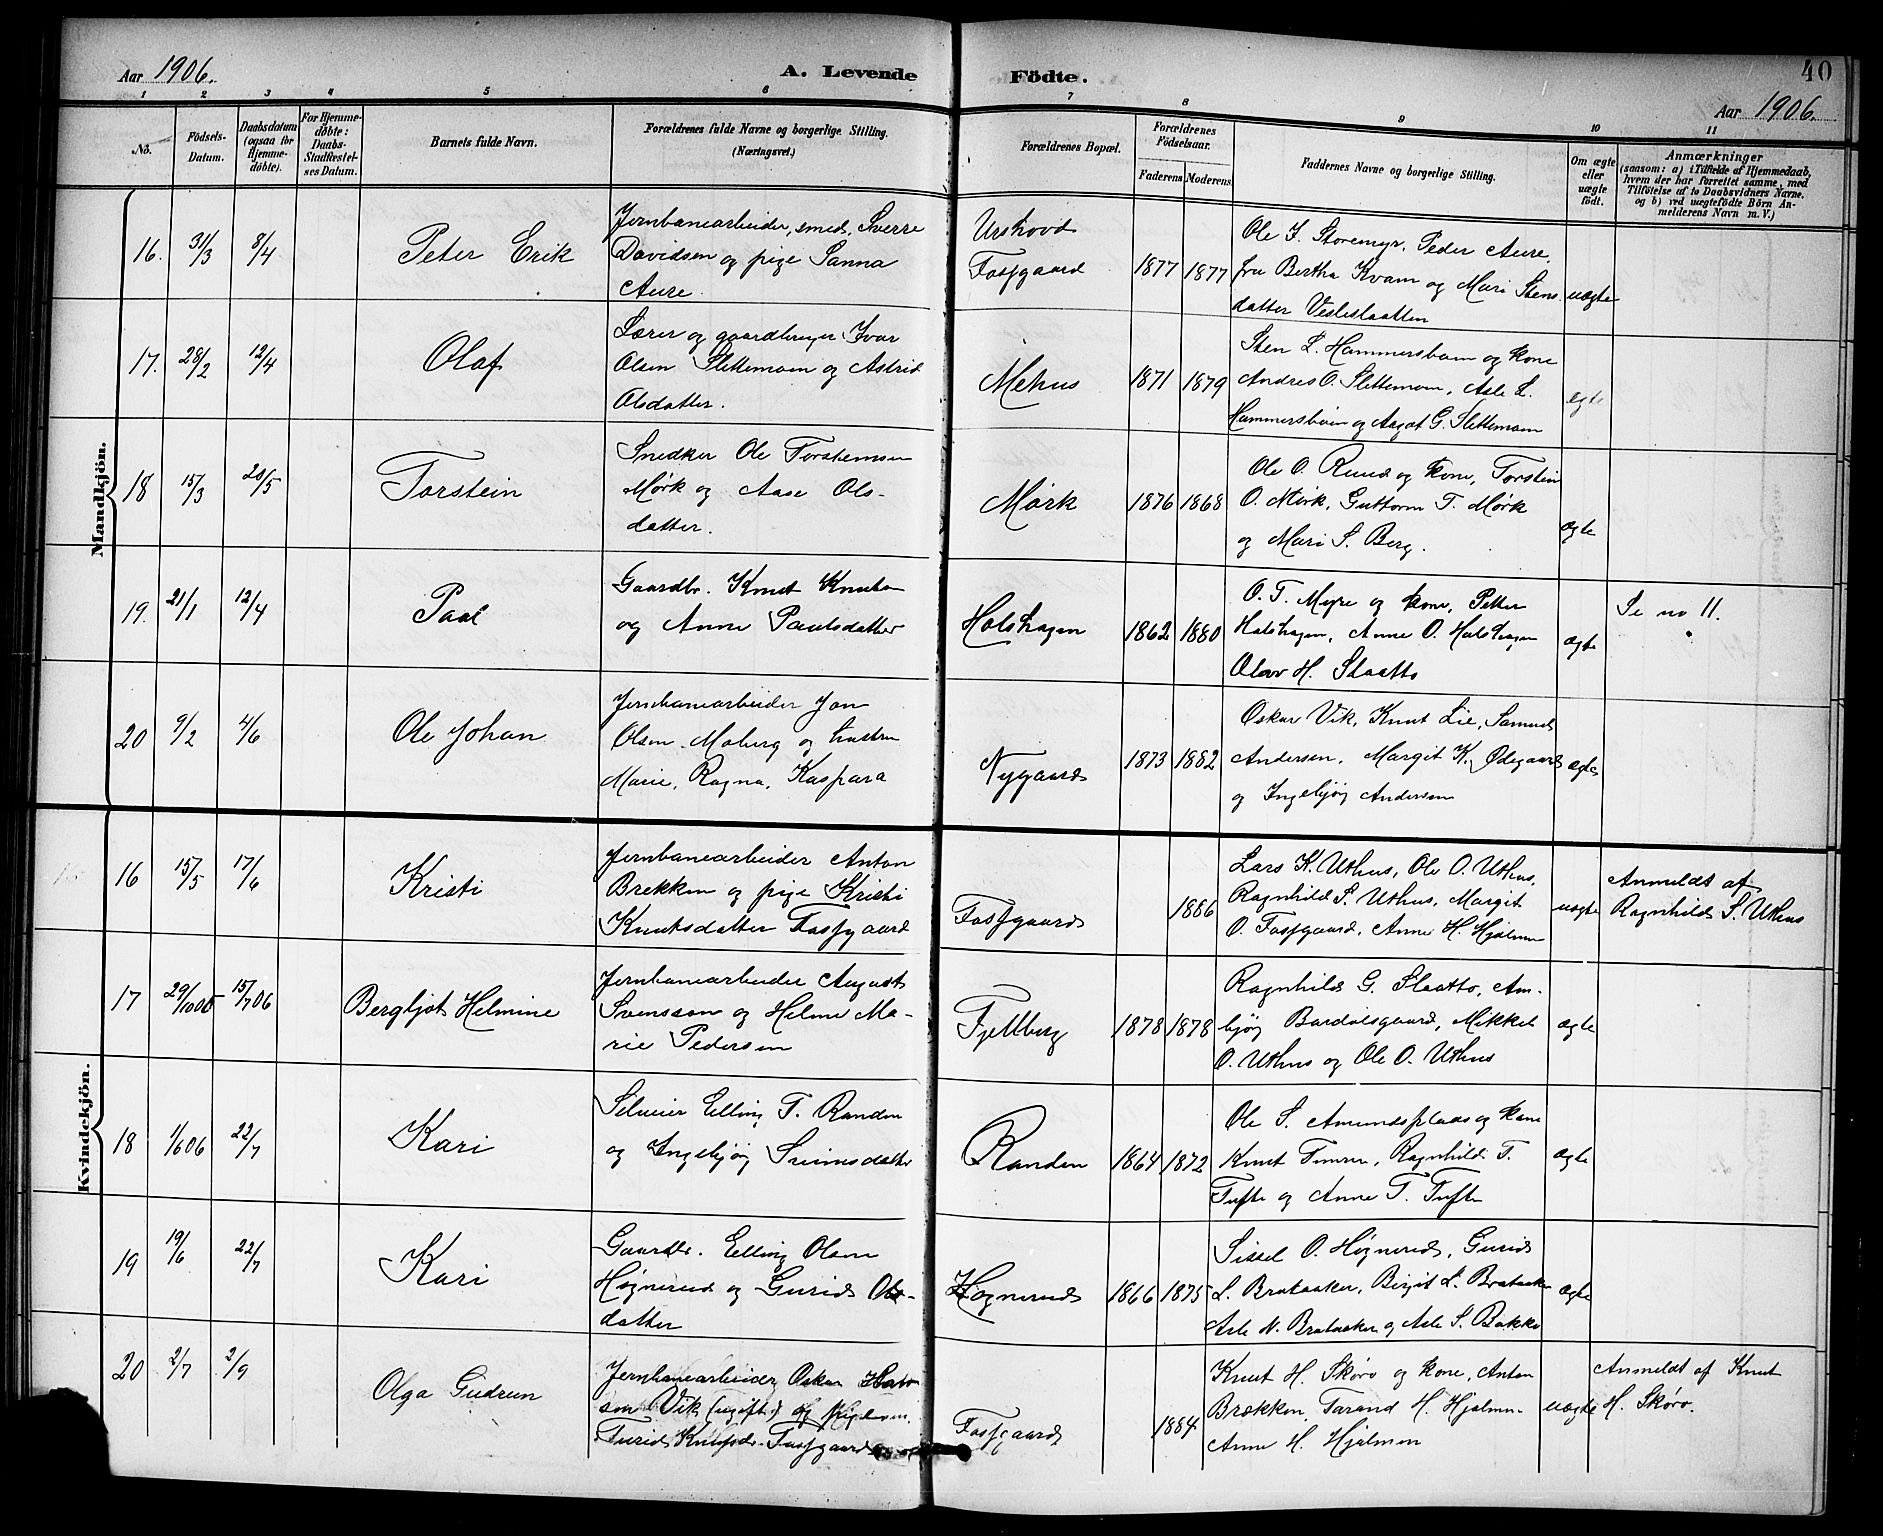 Aar 1906.
A. Levende Födte.
40
Aar 1906.
1 2 3 4 5 6 7 8 9 10 11
No.
Födsels-Datum.
Daabsdatum (ogsaa for Hjemme-döbte).
For Hjemme-döbte: Daabs-Stadfæstel-ses Datum.
Barnets fulde Navn.
Forældrenes fulde Navne og borgerlige Stilling. (Næringsvei.)
Forældrenes Bopæl.
Forældrenes Födselsaar.
Faderens Moderens
Faddernes Navne og borgerlige Stilling.
Om ægte eller uægte födt.
Anmærkninger
(saasom: a) i Tilfælde af Hjemmedaab,
hvem der har forrettet samme, med
Tilföielse af to Daabsvidners Navne.
og b) ved uægtefödte Börn An-
melderens Navn m. V.)
Mandkjön.
16. 31/3 8/4 Peter Erik
Jernbanearbeider, smed, Sverre
Davidsen og pige Sanna
Aure.
Urshovd
Fosgaard
1877 1877
Ole J. Storemyr, Peder Aure,
fru Bertha Kvam og Mari Stens
datter Vesleslaatten
uægte
17. 28/2 12/4 Olaf
Lærer og gaardbruger Ivar
Olsen Slettemoen og Astrid
Olsdatter.
Mehus
1871 1879
Sten L. Hammersboen og kone
Andres O. Slettemoen, Asle L.
Hammersboen og Aagot G. Slettemoen
ægte
18 15/3 20/5 Torstein
Snedker Ole Torstensen
Mørk og Aase Ols-
datter.
Mørk
1876 1868
Ole O. Ruud og kone, Torstein
O. Mørk, Guttorm T. Mørk
og Mari S. Berg.
ægte
19. 21/1 12/4 Paal
Gaardbr. Knut Knutsen
og Anne Paulsdatter
Holshagen
1862 1880
O. T. Myre og kone, Petter
Halshagen, Anne O. Halshagen
Olav H. Slaatto
ægte
Se no 11.
20 9/2 4/6 Ole Johan
Jernbanearbeider Jon
Olsen Moberg og hustru
Marie, Ragna, Kaspara
Nygaard
1873 1882
Oskar Vik, Knut Lie, Samuel
Andersen, Margit K. Ødegaard
og Ingebjørg Andersen
ægte
Kvindekjön.
16 15/5 17/6 Kristi
Jernbanearbeider Anton
Brekken og pige Kristi
Knutsdatter Fosgaard
Fosgaard
1886
Lars K. Uthus, Ole O. Uthus,
Ragnhild S. Uthus, Margit
O. Fosgaard, Anne H. Hjelmen
uægte
Anmeldt af
Ragnhild S. Uthus
17 29/10 05 15/7 06 Bergljot Helmine
Jernbanearbeider August
Svensson og Helene Ma-
rie Pedersen
Fjellberg
1878 1878
Ragnhild G. Slaatto, Am-
bjørg Bardolsgaard, Mikkel
O. Uthus og Ole O. Uthus
ægte
18 1/6 06 22/7 Kari
Selveier Elling T. Randen
og Ingebjørg Sveinsdatter
Randen
1864 1872
Ole S. Amundsplads og kone
Knut Timren, Ragnhild T.
Tufte og Anne T. Tufte
ægte
19 19/6 22/7 Kari
Gaardbr. Elling Olsen
Høgnerud og Gurid Ols-
datter
Høgnerud
1866 1875
Sissel O. Høgnerud, Gurid
L. Brataaker, Birgit L. Brataaker
Asle N. Brataaker og Asle S. Bakko
ægte
20 2/7 2/9 Olga Gudrun
Jernbanearbeider Oskar
Vik (ugift) og
Turid Knutsdr. Fosgaard
Fosgaard
1884
Knut H. Skøro og kone, Anton
Brækken, Tarand H. Hjelmen
Anne H. Hjelmen
uægte
Anmeldt af Knut
H. Skøro.